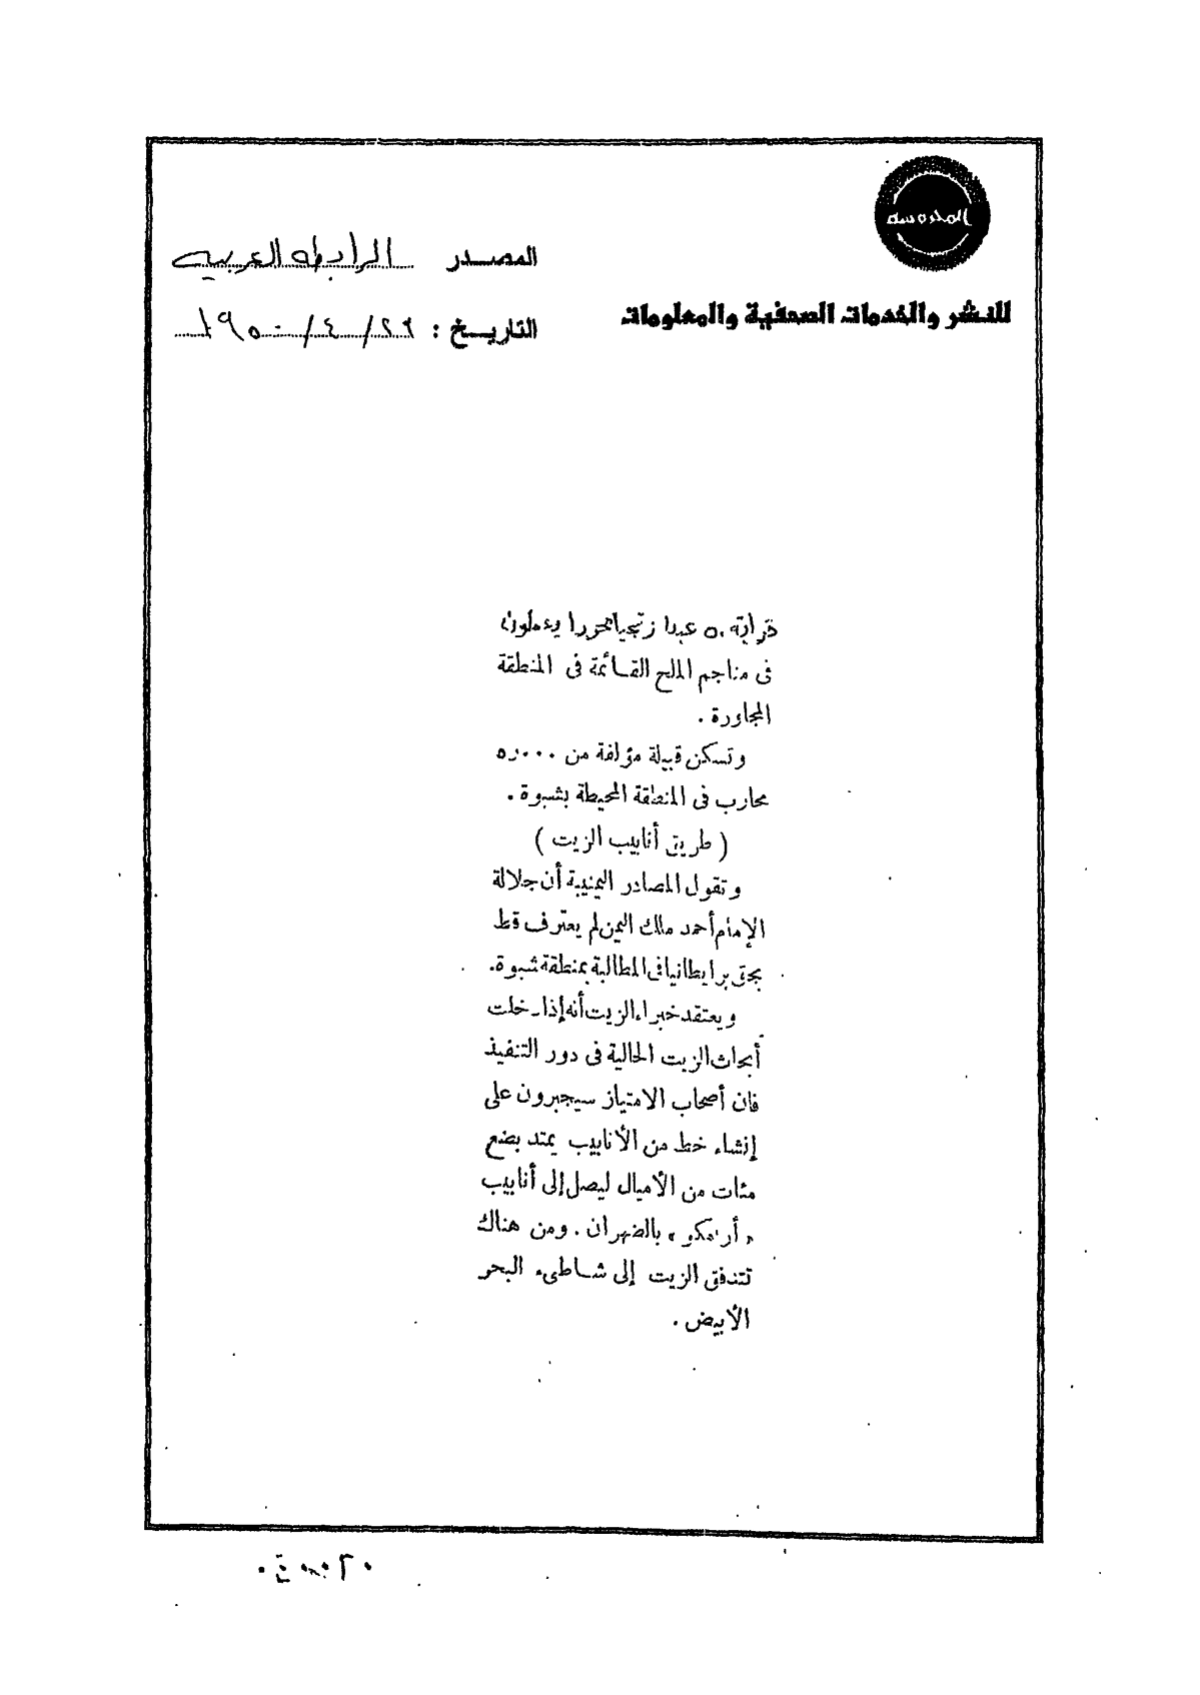 المحروسة
للنشر والخدمات الصحفية والمعلومات
المصدر الرابطة العربية
التاريخ : ٢٩ / ٤ / ١٩٥٠
قرابة ٥٠ عبدا زنجيا تحرروا يعملون
فى مناجم الملح القائمة فى المنطقة
المجاورة .
وتسكن قبيلة مؤلفة من ٥٫٠٠٠
محارب فى المنطقة المحيطة بشبوة .
( طريق أنابيب الزيت )
وتقول المصادر اليمنية أن جلالة
الإمام أحمد ملك اليمن لم يعترف قط
بحق برايطانيا فى المطالبة بمنطقة شبوة .
ويعتقد خبراء الزيت أنه إذا دخلت
أبحاث الزيت الحالية فى دور التنفيذ
فان أصحاب الامتياز سيجبرون على
إنشاء خط من الأنابيب يمتد بضع
مئات من الأميال ليصل إلى أنابيب
« أرامكو » بالظهران . ومن هناك
تتدفق الزيت إلى شاطىء البحر
الأبيض .